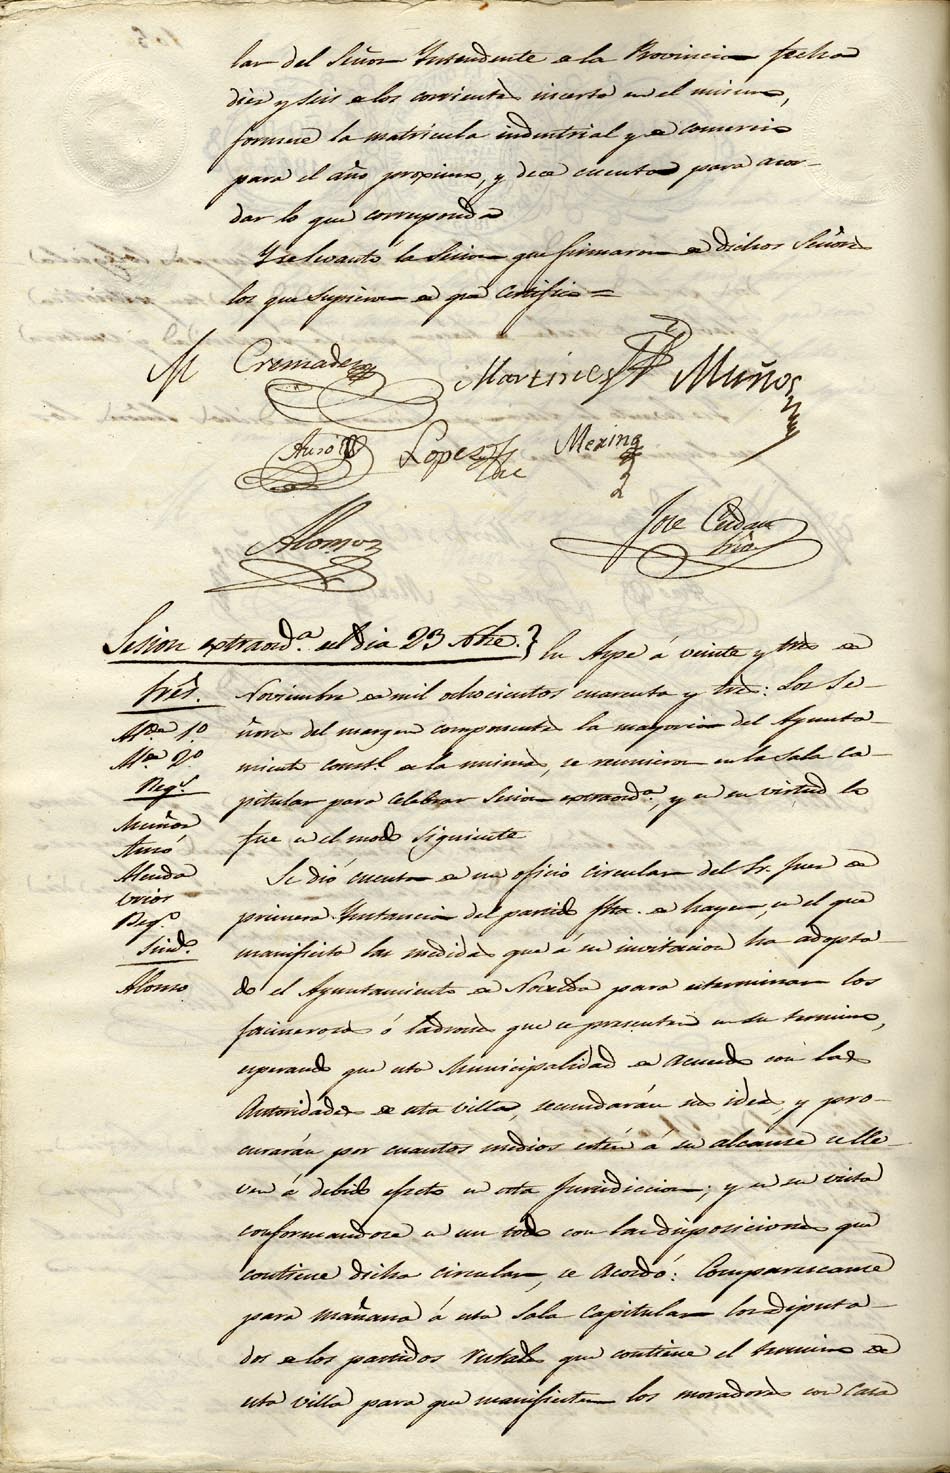 lar del Señor Yntendente de la Provincia fecha
diez y seis de los corrientes inserto en el mismo,
formese la matricula industrial y de comercio
para el año proximo, y dese cuenta para acor-
dar lo que corresponda
Y se levantó la Sesion que firmaron de dichos Señores
los que supieron de que certifico =
M Cremades Martines Muños
Auró Lopez Mexina
Alonso Jose Cerdan
Srio
Sesion extraord.ª del dia 23 Nbre. } En Aspe á veinte y tres de
Sres. Noviembre de mil ochocientos cuarenta y tres: Los Se-
Alde 1.º ñores del margen componentes la mayoria del Ayunta-
Alde 2.º miento const.l de la misma, se reunieron en la sala ca-
Reg.s pitular para celebrar Sesion extraord.ª y en su virtud lo
Muñoz fue en el modo siguiente
Auró
Almda Se dió cuenta de un oficio circular del Sr. Juez de
Reg.º primera Ynstancia del partido fha. de hayer, en el que
Sind.º manifiesta las medidas que á su invitacion ha adopta-
Alonso do el Ayuntamiento de Novelda para esterminar los
facinerosos ó ladrones que se presenten en su termino,
esperando que esta Municipalidad de acuerdo con las
Autoridades de esta villa, secundarán su idea, y pro-
curarán por cuantos medios estén á su alcance se lle-
ven á debido efecto en esta Jurisdiccion; y en su vista
conformandose en un todo con las disposiciones que
contiene dicha circular, se Acordó: Comparescanse
para mañana á esta Sala Capitular los diputa-
dos de los partidos rurales que contiene el termino de
esta villa para que manifiesten los moradores con casa